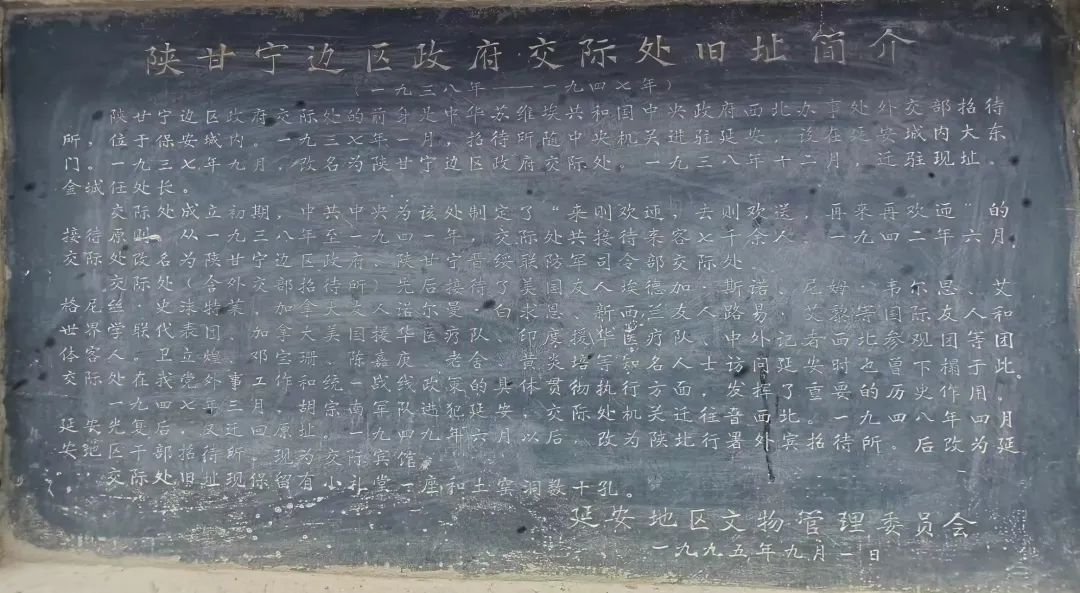 陕甘宁边区政府交际处旧址简介
（一九三八年——一九四七年）
陕甘宁边区政府交际处的前身是中华苏维埃共和国中央政府西北办事处外交部招待
所，位于保安城内。一九三七年一月，招待所随中央机关进驻延安，设在延安城内大东
门。一九三七年九月，改名为陕甘宁边区政府交际处。一九三八年十二月，迁驻现址。
金城任处长。
交际处成立初期，中共中央为该处制定了“来则欢迎，去则欢送，再来再欢迎”的
接待原则。从一九三八年至一九四一年，交际处共接待来客七千余人。一九四二年六月，
交际处改名为陕甘宁边区政府、陕甘宁晋绥联防军司令部交际处。
交际处（含外交部招待所）先后接待了美国友人埃德加·斯诺、尼姆·韦尔思、艾
格尼丝·史沫特莱，加拿大友人诺尔曼·白求恩、新西兰友人路易·艾黎等国际友人和
世界学联代表团、加拿大美国援华医疗队、印度援华医疗队、中外记者西北参观团等团
体。客人卫立煌、邓宝珊、陈嘉庚、老舍、黄炎培等知名人士访问延安时也曾下榻于此。
交际处在我党外事工作和统一战线政策的具体贯彻执行方面，发挥了重要的历史作用。
一九四七年三月，胡宗南军队进犯延安，交际处机关迁往晋西北。一九四八年四月
延安光复后，又迁回原址。一九四九年六月以后，改为陕北行署外宾招待所。后改为延
安地区干部招待所，现为交际宾馆。
交际处旧址现保留有小礼堂一座和土窑洞数十孔。
延安地区文物管理委员会
一九九五年九月一日